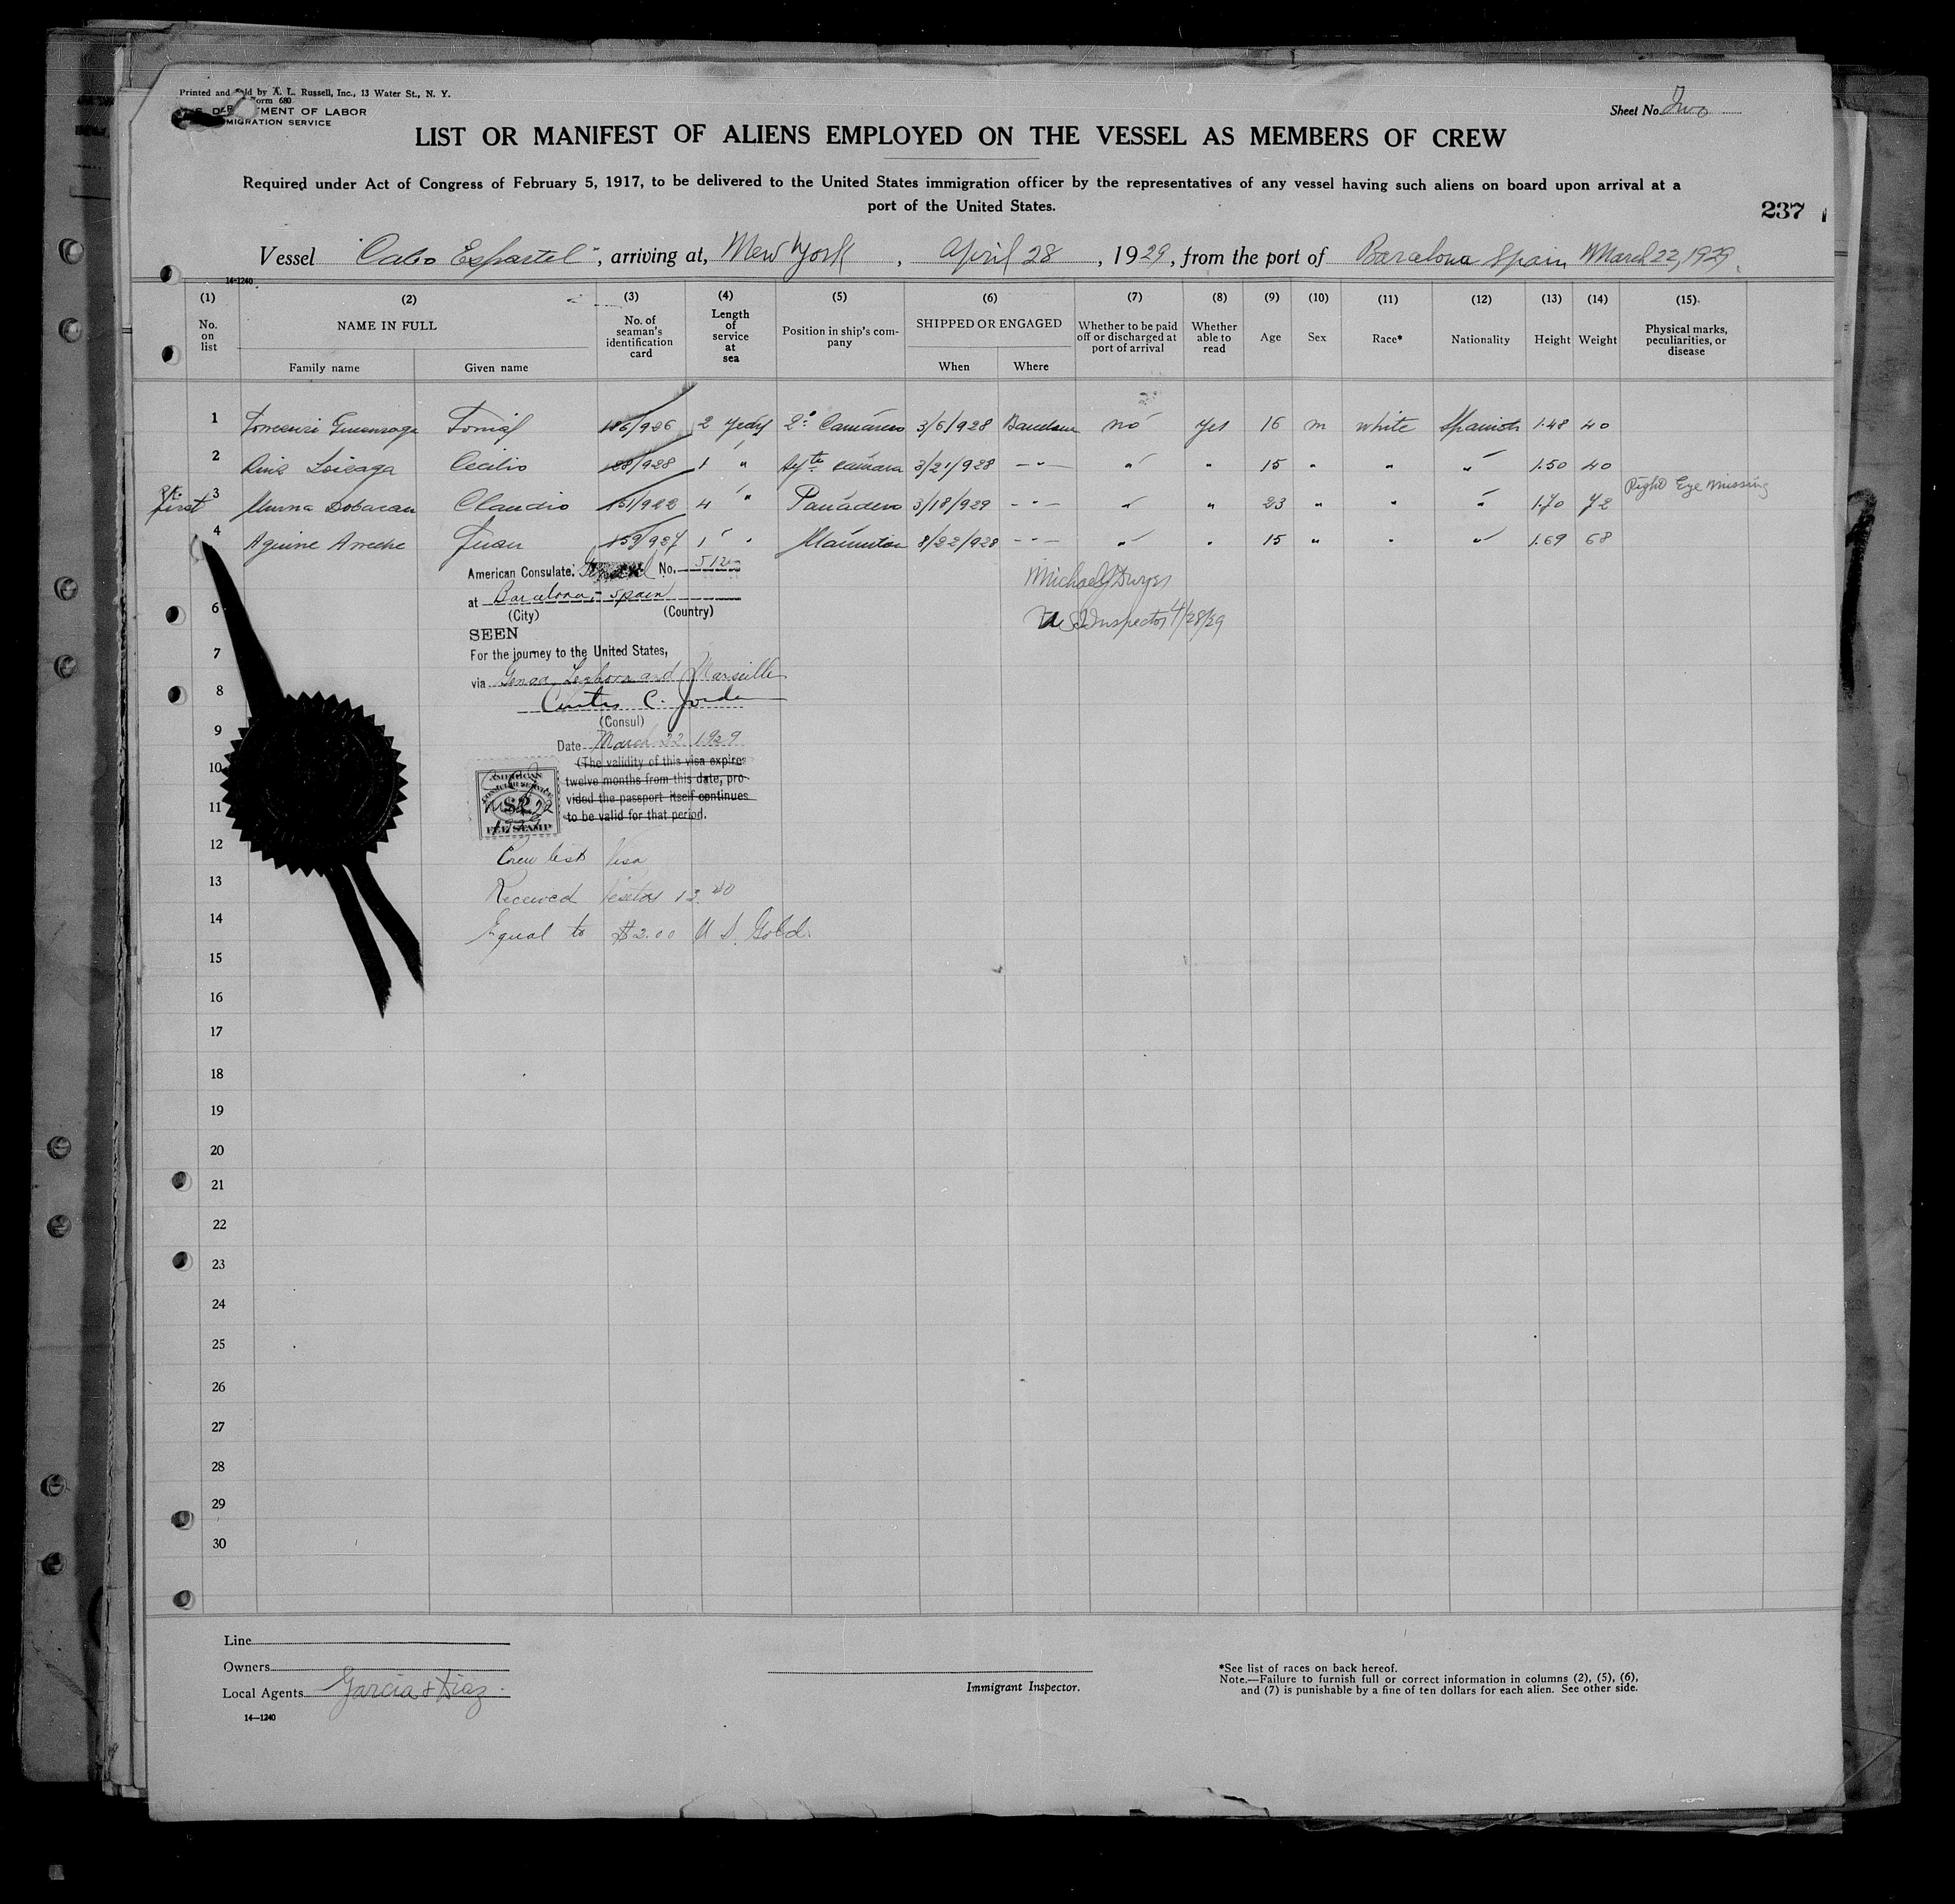 Printed and Sold by A. L. Russell, Inc., 13 Water St., N. Y.
Form 680
MENT OF LABOR
MIGRATION SERVICE
Sheet No. Two
LIST OR MANIFEST OF ALIENS EMPLOYED ON THE VESSEL AS MEMBERS OF CREW
Required under Act of Congress of February 5, 1917, to be delivered to the United States immigration officer by the representatives of any vessel having such aliens on board upon arrival at a
port of the United States.
237
Vessel "Cabo Espartel", arriving at, New York, April 28, 1929, from the port of Barcelona Spain March 22, 1929.
14-1240
(1) (2) (3) (4) (5) (6) (7) (8) (9) (10) (11) (12) (13) (14) (15)
No. on list
NAME IN FULL
Family name
Given name
No. of seaman's identification card
Length of service at sea
Position in ship's company
SHIPPED OR ENGAGED
When
Where
Whether to be paid off or discharged at port of arrival
Whether able to read
Age
Sex
Race*
Nationality
Height
Weight
Physical marks, peculiarities, or disease
1 Tomas 186/926 2 years 2º Camarero 3/6/928 Barcelona no Yes 16 m white Spanish 1.48 40
2 Ruiz Loizaga Cecilio 128/928 1 " Ayte camara 3/21/928 -"- " " 15 " " " 1.50 40
first 3 Claudio 151/922 4 " Panadero 3/18/929 -"- " " 23 " " " 1.70 72 Right Eye missing
4 Aguirre Juan 159/927 1 " 8/22/928 -"- " " 15 " " " 1.69 68
American Consulate General No. 512
at Barcelona, - Spain
(City) (Country)
SEEN
For the journey to the United States,
via Genoa, Leghorn and Marseille
Curtis C. Jordan
(Consul)
Date March 22 1929
(The validity of this visa expires
twelve months from this date, pro-
vided the passport itself continues
to be valid for that period.
AMERICAN
CONSULAR SERVICE
$2
FEE STAMP
Crew list Visa
Received pesetas 13.40
Equal to $2.00 U S. Gold.
Michael J
U S Inspector 4/28/29
6
7
8
9
10
11
12
13
14
15
16
17
18
19
20
21
22
23
24
25
26
27
28
29
30
Line
Owners
Local Agents Garcia & Diaz
14-1240
Immigrant Inspector.
*See list of races on back hereof.
Note.—Failure to furnish full or correct information in columns (2), (5), (6),
and (7) is punishable by a fine of ten dollars for each alien. See other side.